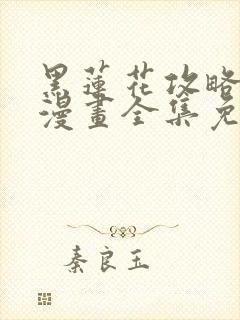 黑蓮花攻略
漫畫全集免
秦良玉